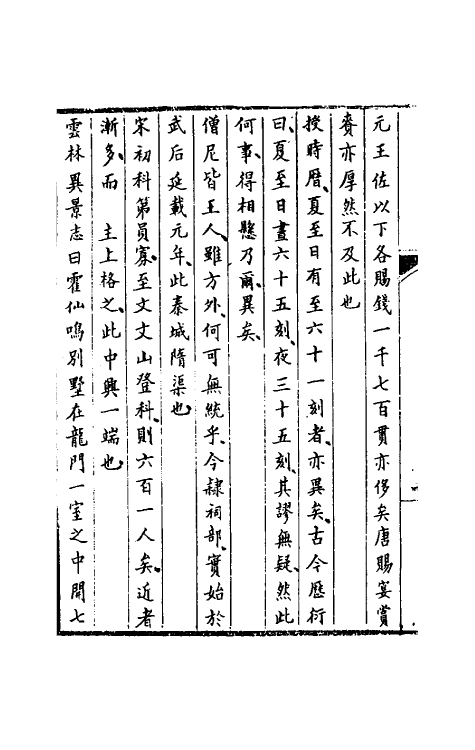 元王佐以下各賜錢一千七百貫亦侈矣唐賜宴賞
賚亦厚然不及此也
授時曆夏至日有至六十一刻者亦異矣古今曆衍
曰夏至日晝六十五刻夜三十五刻其謬無疑然此
何事得相懸乃爾異矣
僧尼皆王人雖方外何可無統乎今隸祠部實始於
武后延載元年此秦城隋渠也
宋初科第員寡至文文山登科則六百一人矣近者
漸多而　主上格之此中興一端也
雲林異景志曰霍仙鳴別墅在龍門一室之中開七